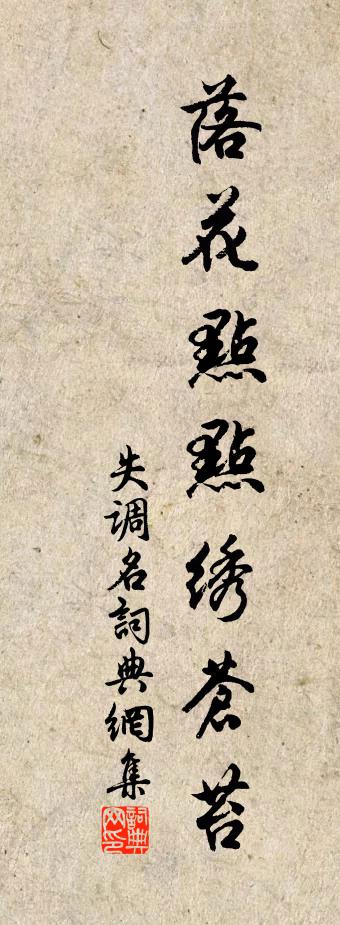 落花點點綉蒼苔
失调名詞典網集
詞典网印